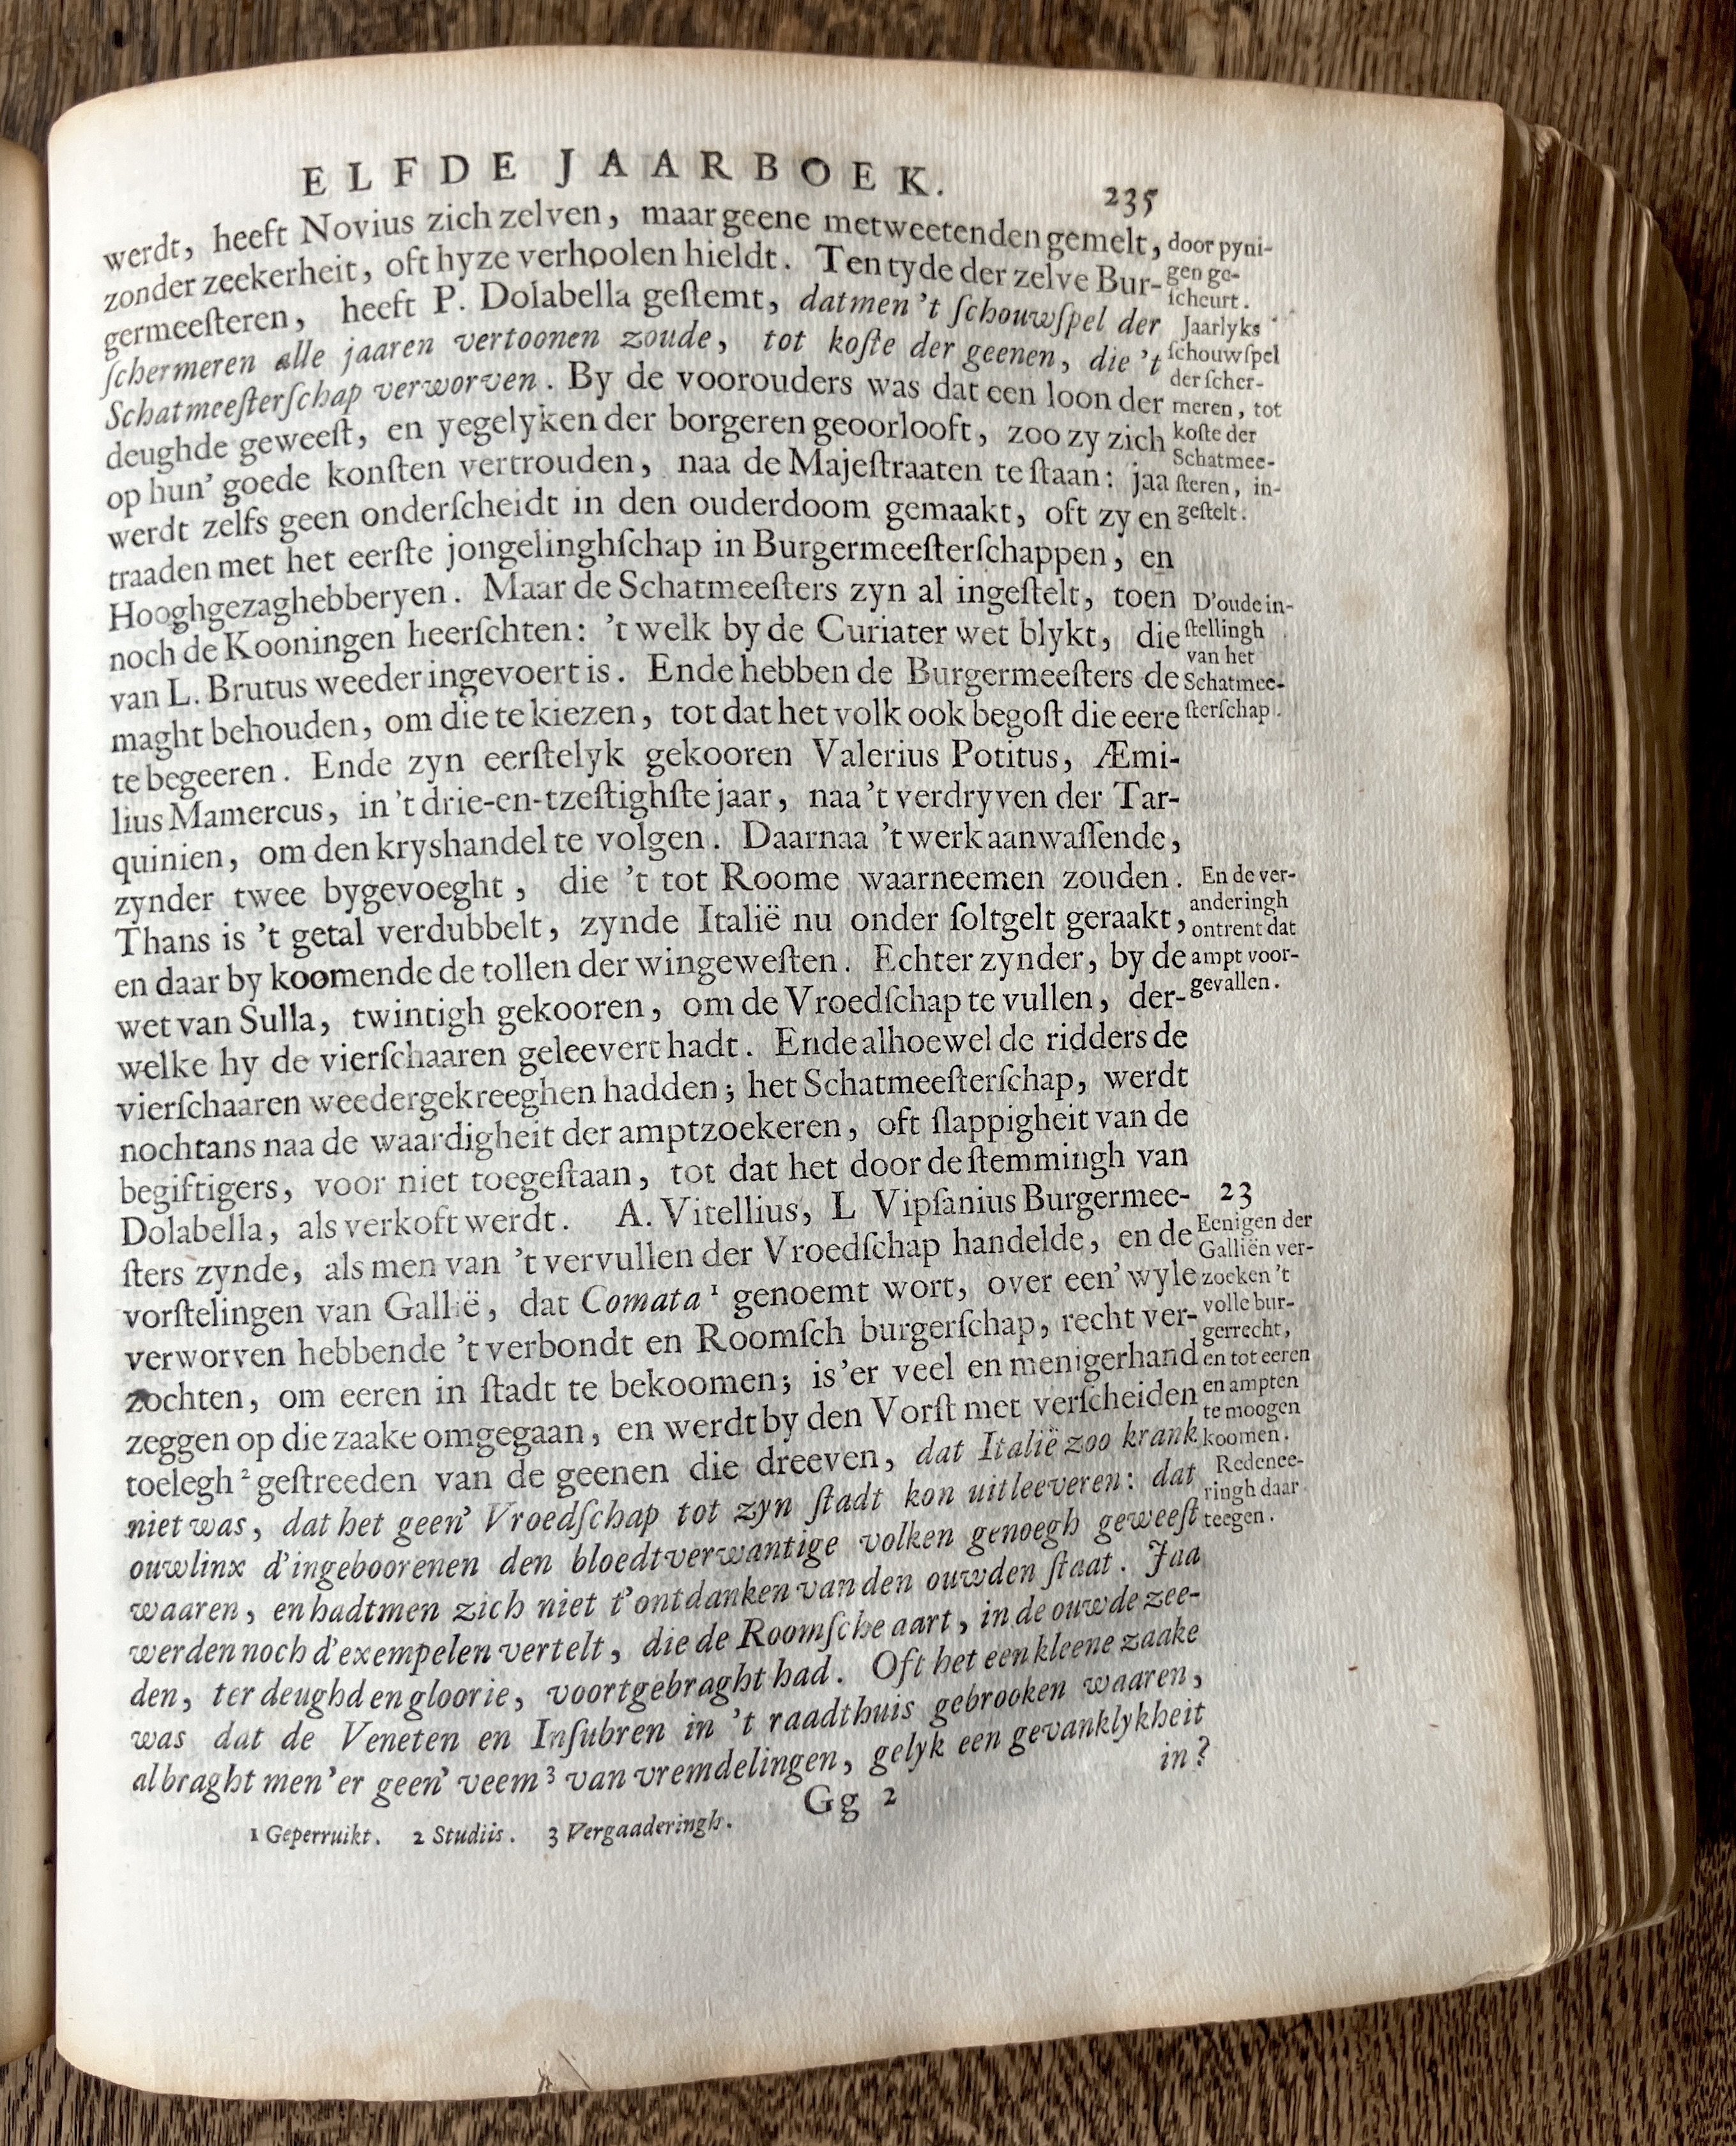 ELFDE JAARBOEK.
235
werdt, heeft Novius zich zelven, maar geene metweetenden gemelt,
zonder zeekerheit, oft hyze verhoolen hieldt. Ten tyde der zelve Bur-
germeeſteren, heeft P. Dolabella geſtemt, datmen 't ſchouwſpel der
ſchermeren alle jaaren vertoonen zoude, tot koſte der geenen, die 't
Schatmeeſterſchap verworven. By de voorouders was dat een loon der
deughde geweeſt, en yegelyken der borgeren geoorlooft, zoo zy zich
op hun' goede konſten vertrouden, naa de Majeſtraaten te ſtaan: jaa
werdt zelfs geen onderſcheidt in den ouderdoom gemaakt, oft zy en
traaden met het eerſte jongelinghſchap in Burgermeeſterſchappen, en
Hooghgezaghebberyen. Maar de Schatmeeſters zyn al ingeſtelt, toen
noch de Kooningen heerſchten: 't welk by de Curiater wet blykt, die
van L. Brutus weeder ingevoert is. Ende hebben de Burgermeeſters de
maght behouden, om die te kiezen, tot dat het volk ook begoſt die eere
te begeeren. Ende zyn eerſtelyk gekooren Valerius Potitus, Æmi-
lius Mamercus, in 't drie-en-tzeſtighſte jaar, naa 't verdryven der Tar-
quinien, om den kryshandel te volgen. Daarnaa 't werk aanwaſſende,
zynder twee bygevoeght, die 't tot Roome waarneemen zouden.
Thans is 't getal verdubbelt, zynde Italië nu onder ſoltgelt geraakt,
en daar by koomende de tollen der wingeweſten. Echter zynder, by de
wet van Sulla, twintigh gekooren, om de Vroedſchap te vullen, der-
welke hy de vierſchaaren geleevert hadt. Ende alhoewel de ridders de
vierſchaaren weedergekreeghen hadden; het Schatmeeſterſchap, werdt
nochtans naa de waardigheit der amptzoekeren, oft ſlappigheit van de
begiftigers, voor niet toegeſtaan, tot dat het door de ſtemmingh van
Dolabella, als verkoft werdt. A. Vitellius, L Vipſanius Burgermee-
ſters zynde, als men van 't vervullen der Vroedſchap handelde, en de
vorſtelingen van Gallië, dat Comata 1 genoemt wort, over een' wyle
verworven hebbende 't verbondt en Roomſch burgerſchap, recht ver-
zochten, om eeren in ſtadt te bekoomen; is 'er veel en menigerhand
zeggen op die zaake omgegaan, en werdt by den Vorſt met verſcheiden
toelegh 2 geſtreeden van de geenen die dreeven, dat Italië zoo krank
niet was, dat het geen' Vroedſchap tot zyn ſtadt kon uitleeveren: dat
ouwlinx d'ingeboorenen den bloedtverwantige volken genoegh geweeſt
waaren, en hadtmen zich niet t'ontdanken van den ouwden ſtaat. Jaa
werden noch d'exempelen vertelt, die de Roomſche aart, in de ouwde zee-
den, ter deughd en gloorie, voortgebraght had. Oft het een kleene zaake
was dat de Veneten en Inſubren in 't raadthuis gebrooken waaren,
al braght men 'er geen' veem 3 van vremdelingen, gelyk een gevanklykheit
in?
Gg 2
1 Geperruikt. 2 Studiis. 3 Vergaaderingh.
door pyni-
gen ge-
ſcheurt.
Jaarlyks
ſchouwſpel
der ſcher-
meren, tot
koſte der
Schatmee-
ſteren, in-
geſtelt.
D'oude in-
ſtellingh
van het
Schatmee-
ſterſchap.
En de ver-
anderingh
ontrent dat
ampt voor-
gevallen.
23
Eenigen der
Galliën ver-
zoeken 't
volle bur-
gerrecht,
en tot eeren
en ampten
te moogen
koomen.
Redenee-
ringh daar
teegen.